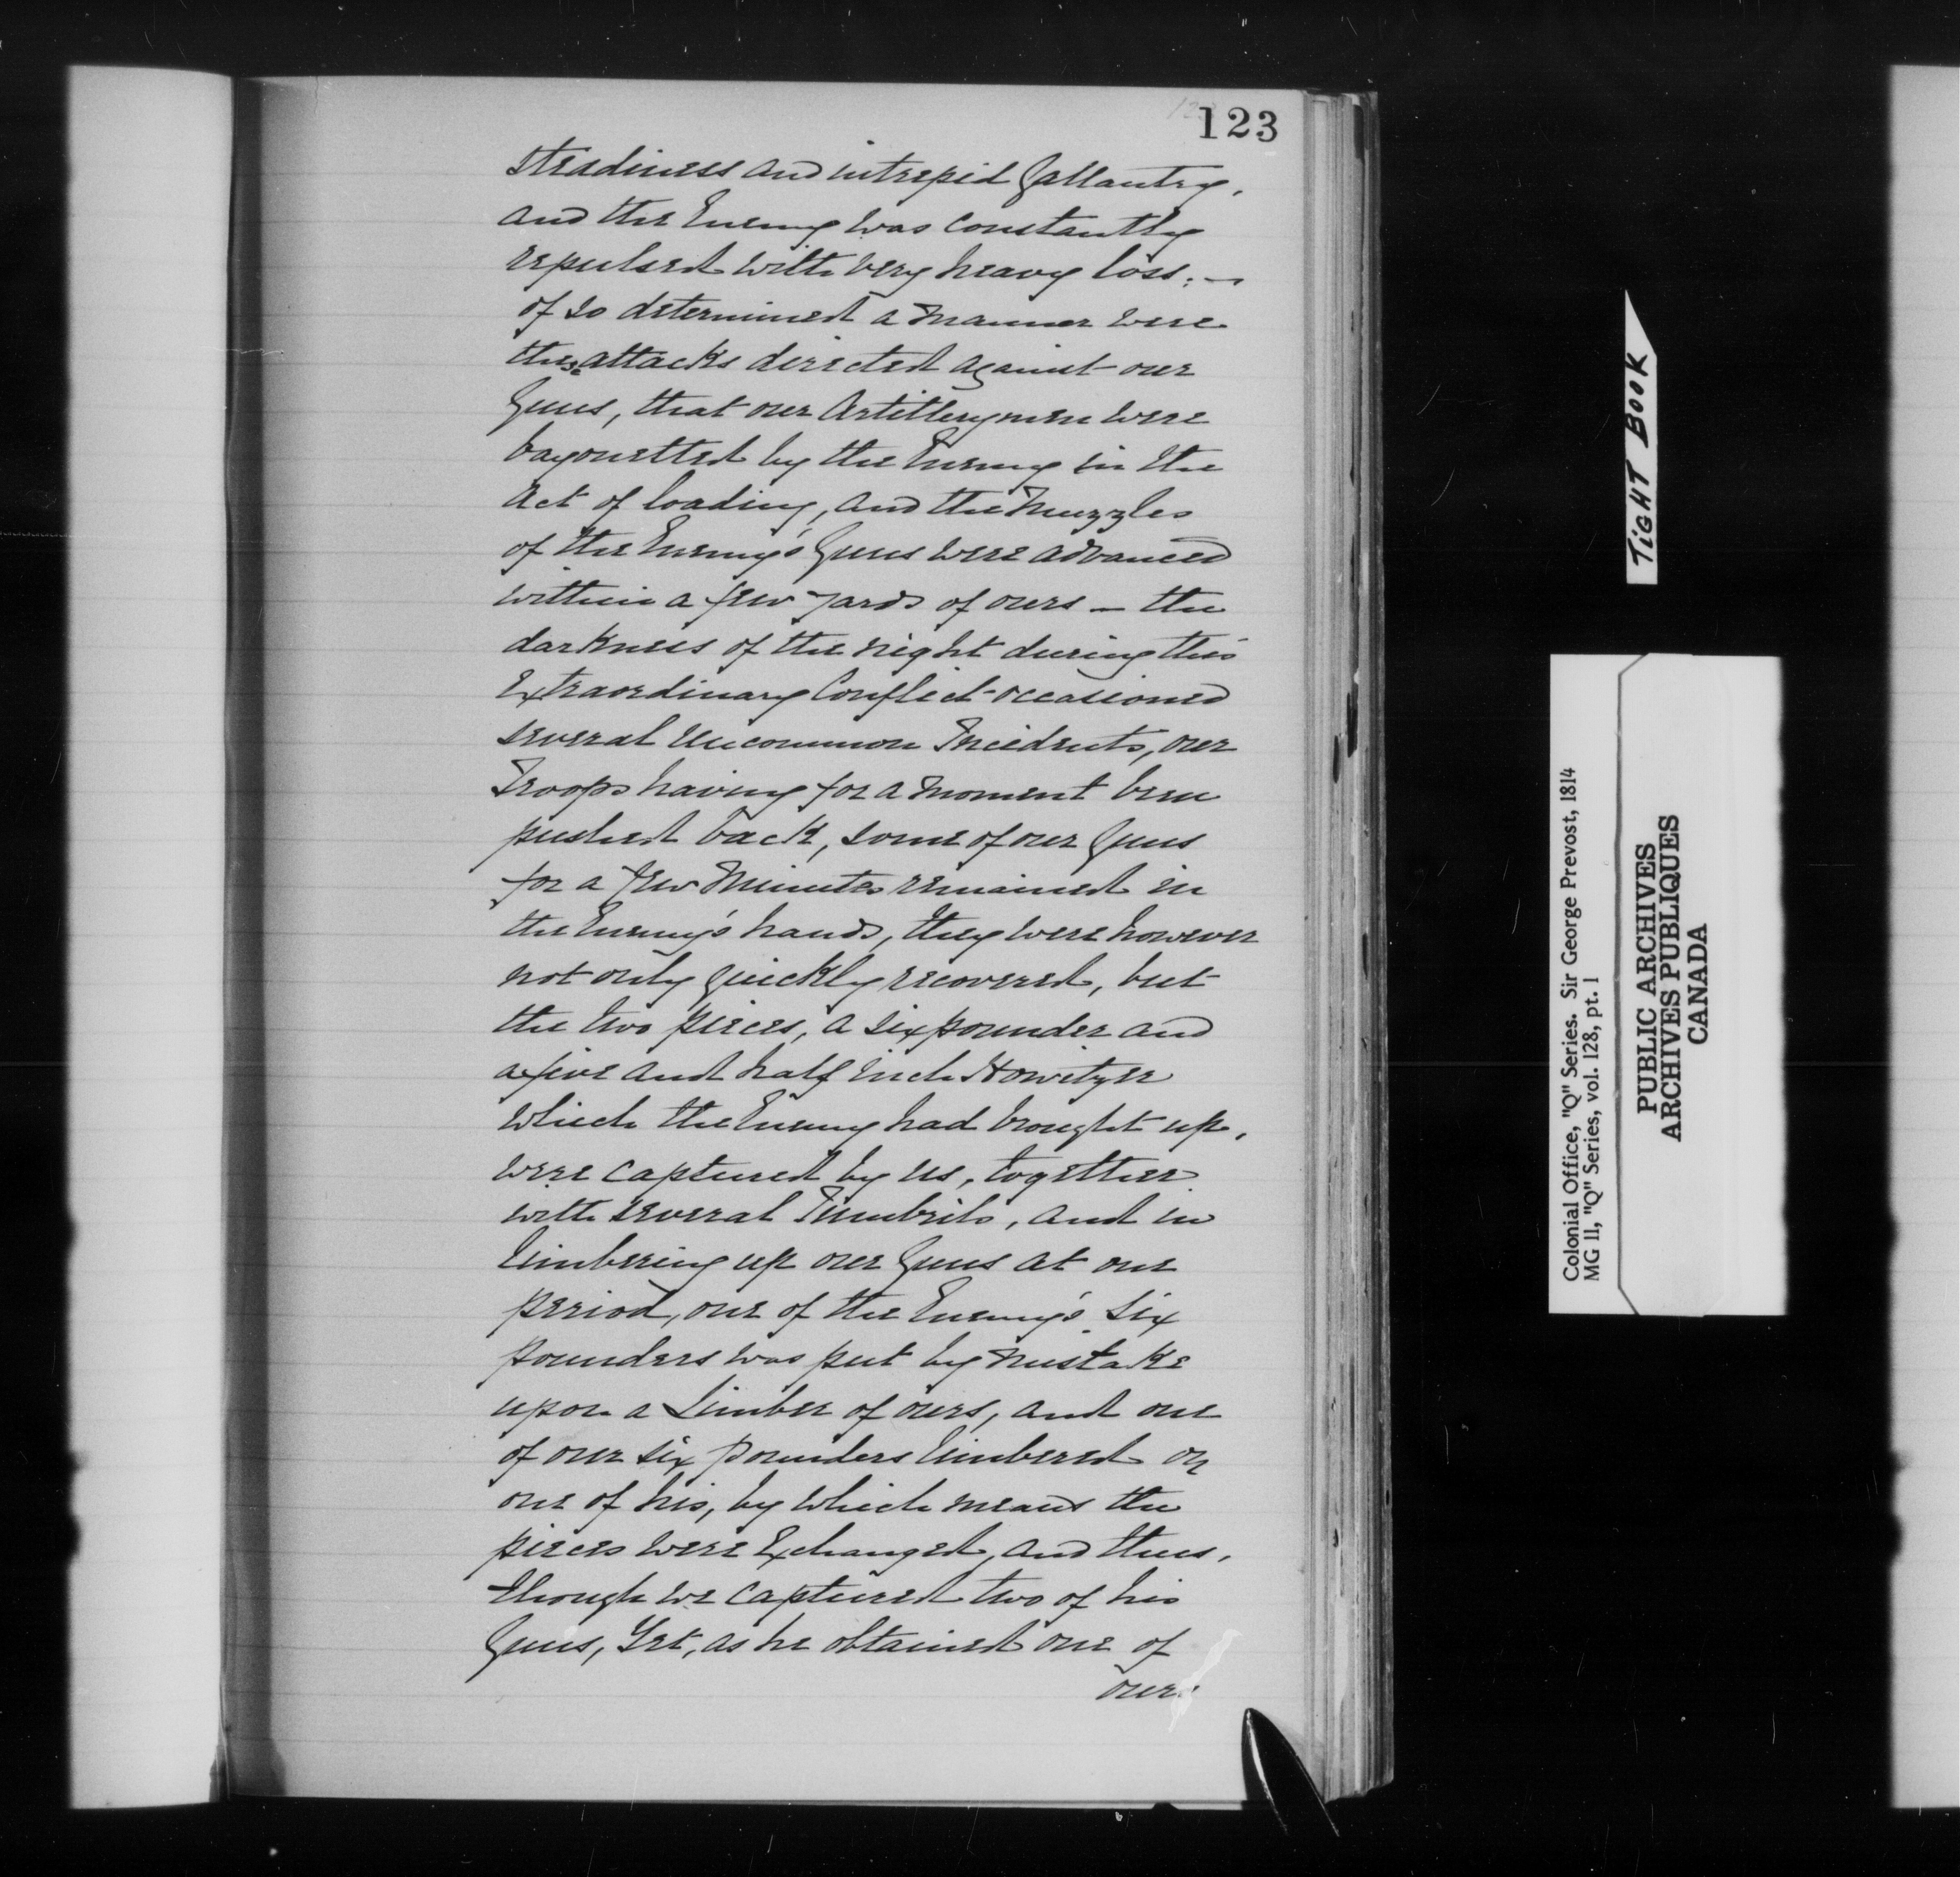 123
steadiness and intrepid Gallantry,
and the Enemy was constantly
repulsed with very heavy loss; —
of so determined a manner were
these attacks directed against our
Guns, that our Artillerymen were
bayonetted by the Enemy in the
Act of loading, and the Muzzles
of the Enemy's Guns were advanced
within a few yards of ours — the
darkness of the night during this
Extraordinary Conflict occasioned
several uncommon Incidents, our
Troops having for a moment been
pushed back, some of our Guns
for a few Minutes remained in
the Enemy's hands, they were however
not only quickly recovered, but
the two pieces, a six pounder and
a five and half inch Howitzer
which the Enemy had brought up,
were captured by us, together
with several Tumbrils, and in
limbering up our Guns at one
period, one of the Enemy's six
pounders was put by mistake
upon a Limber of ours, and one
of our six pounders limbered on
one of his, by which means the
pieces were Exchanged, and thus,
though we captured two of his
Guns, Yet, as he obtained one of
ours
TIGHT BOOK
Colonial Office, "Q" Series. Sir George Prevost, 1814
MG 11, "Q" Series, vol. 128, pt. 1
PUBLIC ARCHIVES
ARCHIVES PUBLIQUES
CANADA